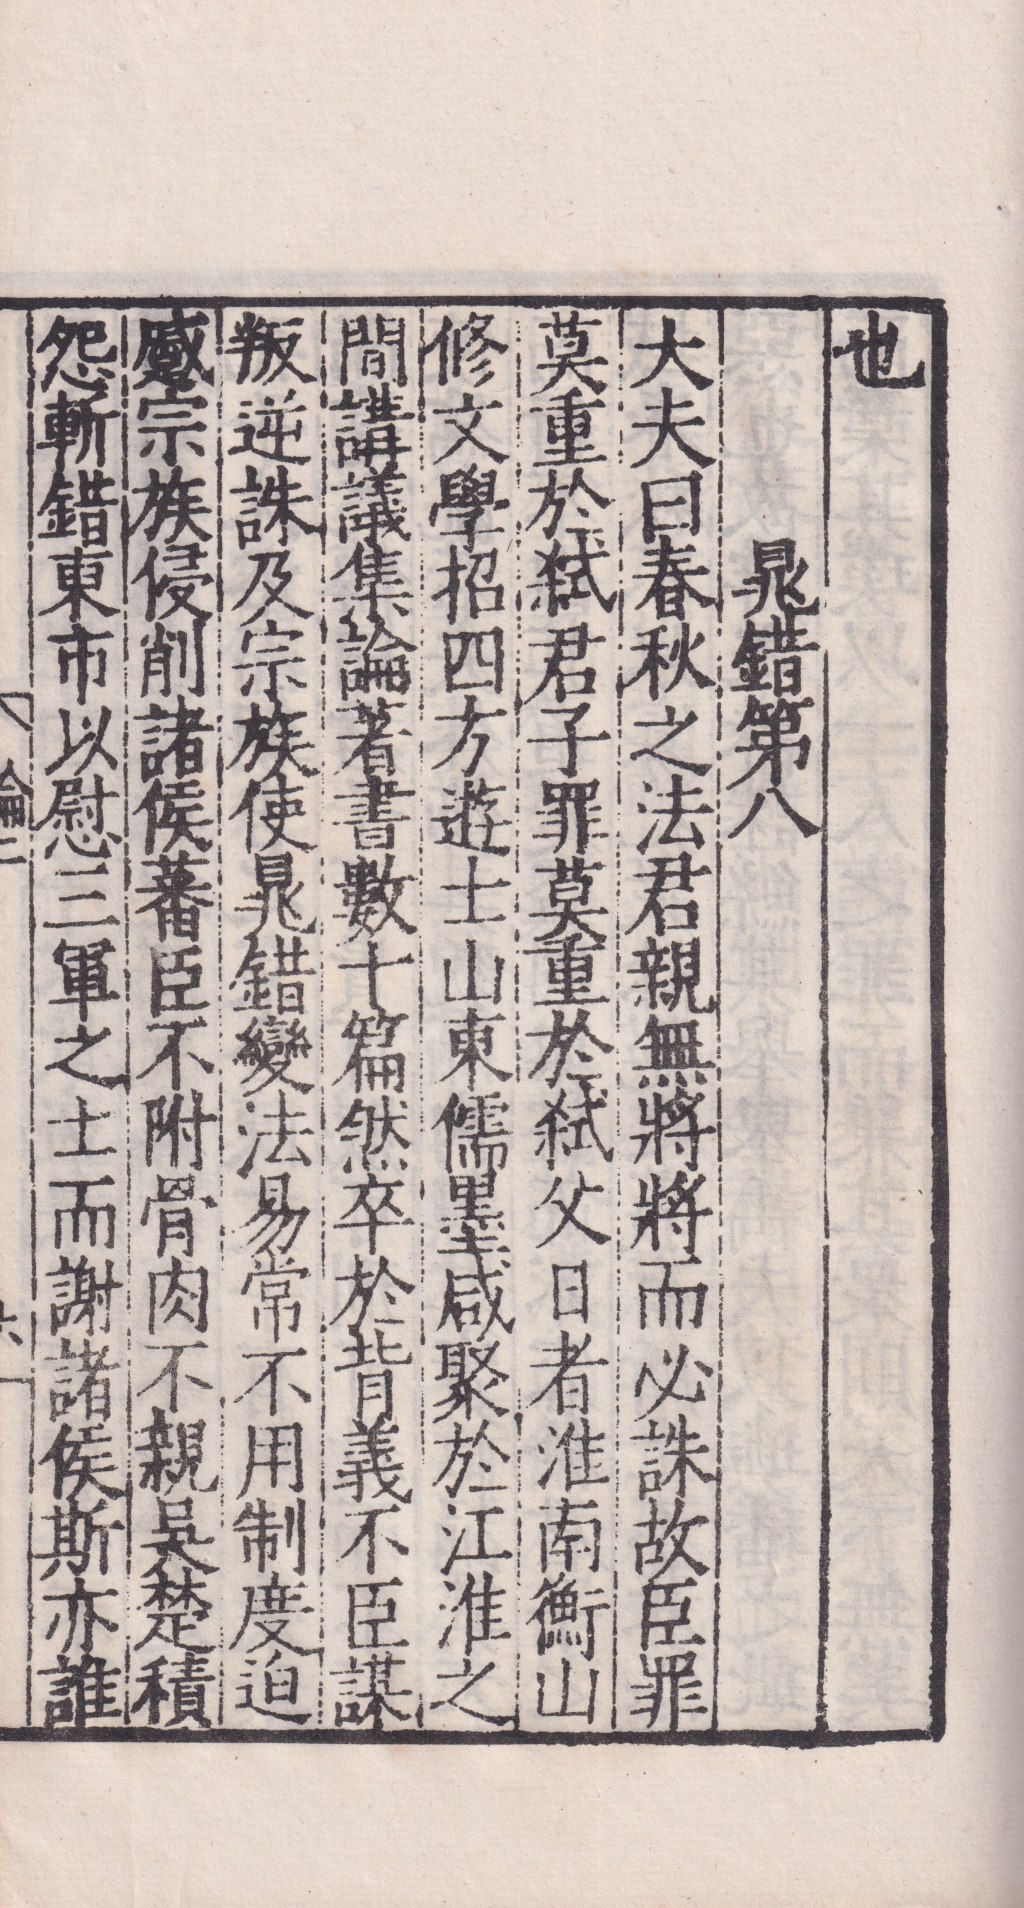 也
晁錯第八
大夫曰春秋之法君親無將將而必誅故臣罪
莫重於弑君子罪莫重於弑父日者淮南衡山
修文學招四方遊士山東儒墨咸聚於江淮之
間講議集論著書數十篇然卒於背義不臣謀
叛逆誅及宗族使晁錯變法易常不用制度迫
蹙宗族侵削諸侯蕃臣不附骨肉不親吳楚積
怨斬錯東市以慰三軍之士而謝諸侯斯亦誰
論二
六